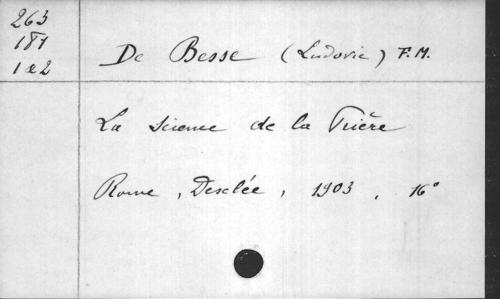 263
181
1 a 2
De Besse (Ludovic) F.M.
La science de la Prière
Rome, Desclée, 1903, 16°